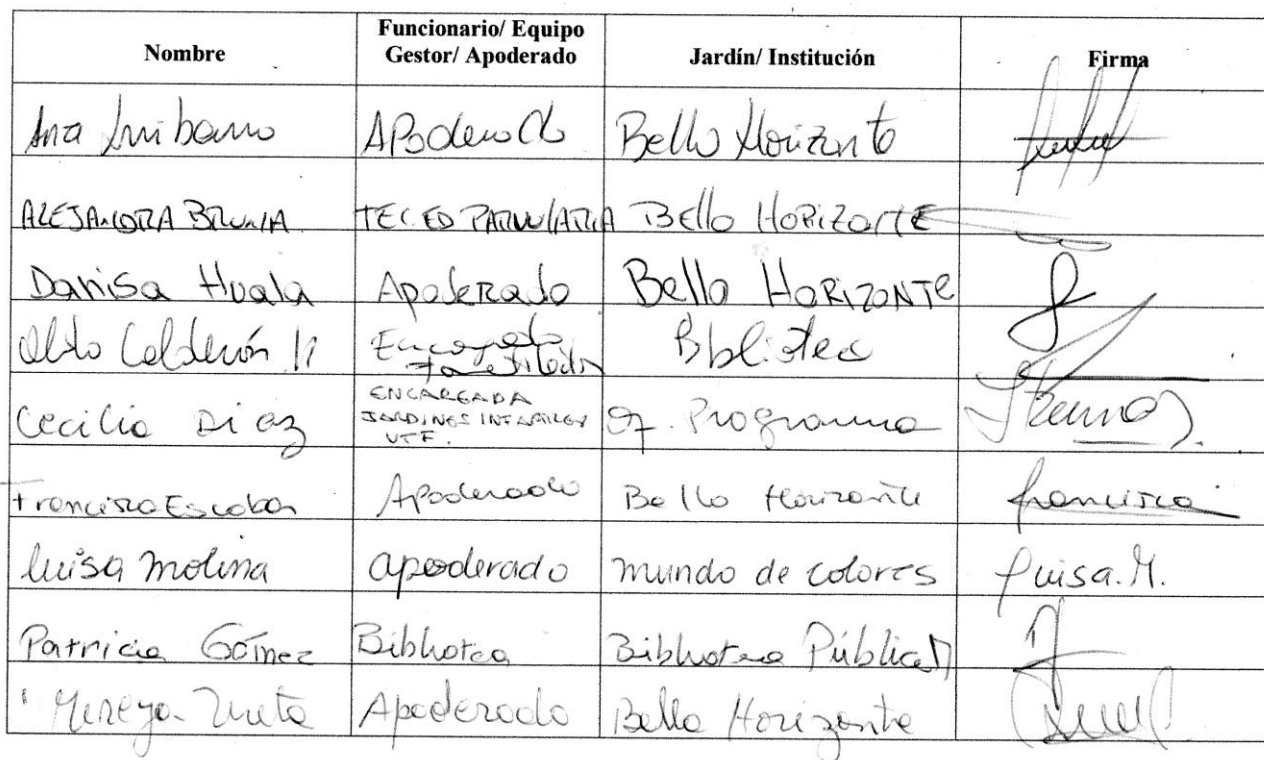 Nombre Funcionario/ Equipo Gestor/ Apoderado Jardín/ Institución Firma
Ana Apoderado Bello Horizonte
ALEJANDRA TEC ED PARVULARIA Bello HORizoNTE
Danisa Huala Apoderado Bello HORIZONTE
Calderón Biblioteca
Cecilia Diaz ENCARGADA JARDINES INFANTILES VTF. Programa
Francisca Escobar Apoderado Bello Horizonte francisca
luisa molina apoderado mundo de colores Luisa. M.
Patricia Gómez Biblioteca Biblioteca Pública
Apoderado Bello Horizonte